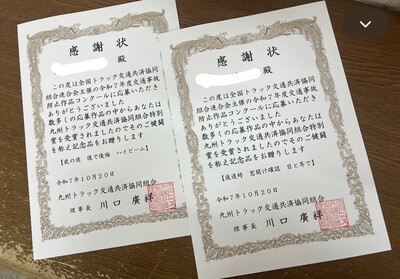 感謝状
殿
この度は全国トラック交通共済協同
組合連合会主催の令和7年度交通事故
防止作品コンクールに応募いただき
ありがとうございました
数多くの応募作品の中からあなたは
九州トラック交通共済協同組合特別
賞を受賞されましたのでそのご健闘
を称え記念品をお贈りします
【夜の道 後で後悔 ハイビーム】
令和7年10月20日
九州トラック交通共済協同組合
理事長 川口 廣祥
感謝状
殿
この度は全国トラック交通共済協同
組合連合会主催の令和7年度交通事故
防止作品コンクールに応募いただき
ありがとうございました
数多くの応募作品の中からあなたは
九州トラック交通共済協同組合特別
賞を受賞されましたのでそのご健闘
を称え記念品をお贈りします
【後退時 窓開け確認 目と耳で】
令和7年10月20日
九州トラック交通共済協同組合
理事長 川口 廣祥